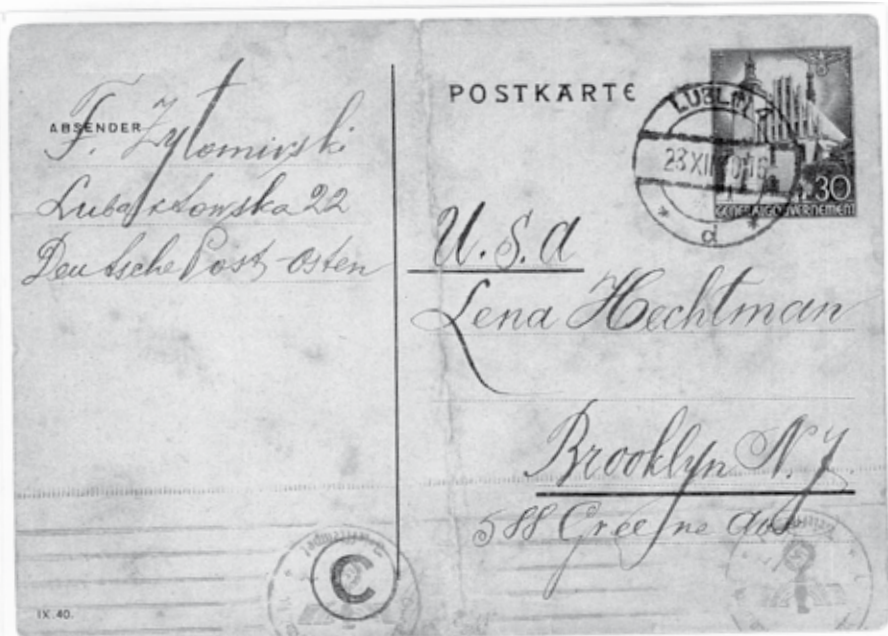 ABSENDER
F. Zytomirski
Lubartowska 22
Deutsche Post Osten
IX. 40.
POSTKARTE
LUBLIN
23 XII
d
30
GENERALGOUVERNEMENT
U.S.A
Lena Hechtman
Brooklyn N.Y.
588 Greene Ave
C